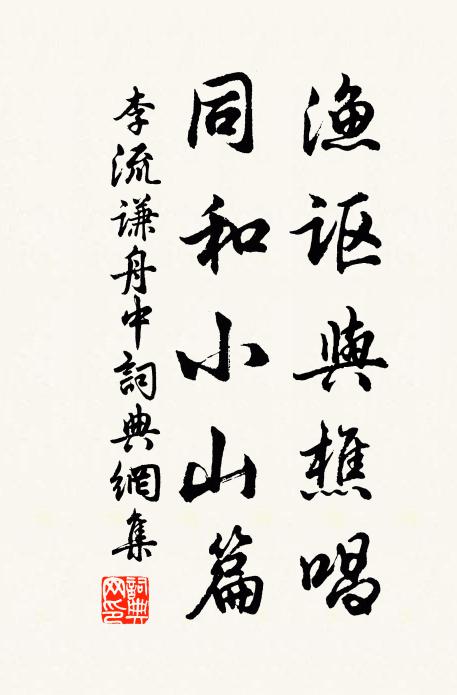 渔讴與樵唱
同和小山篇
李流谦舟中詞典網集
詞典網印